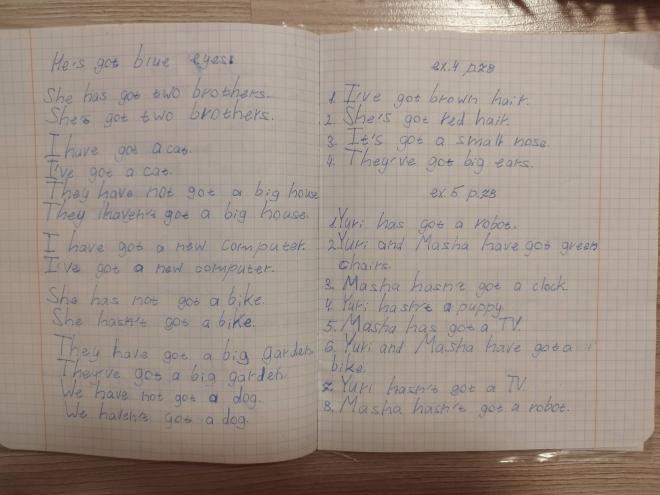 He's got blue eyes.
She has got two brothers.
She's got two brothers.
I have got a cat.
I've got a cat.
They have not got a big house
They haven't got a big house.
I have got a new computer.
I've got a new computer.
She has not got a bike.
She hasn't got a bike.
They have got a big garden.
They've got a big garden.
We have not got a dog.
We haven't got a dog.
ex.4 p.28
1. I've got brown hair.
2. She's got red hair.
3. It's got a small nose.
4. They've got big ears.
ex.5 p.28
1. Yuri has got a robot.
2. Yuri and Masha have got green
chairs.
3. Masha hasn't got a clock.
4. Yuri hasn't a puppy
5. Masha has got a TV.
6. Yuri and Masha have got a
bike.
7. Yuri hasn't got a TV
8. Masha hasn't got a robot.